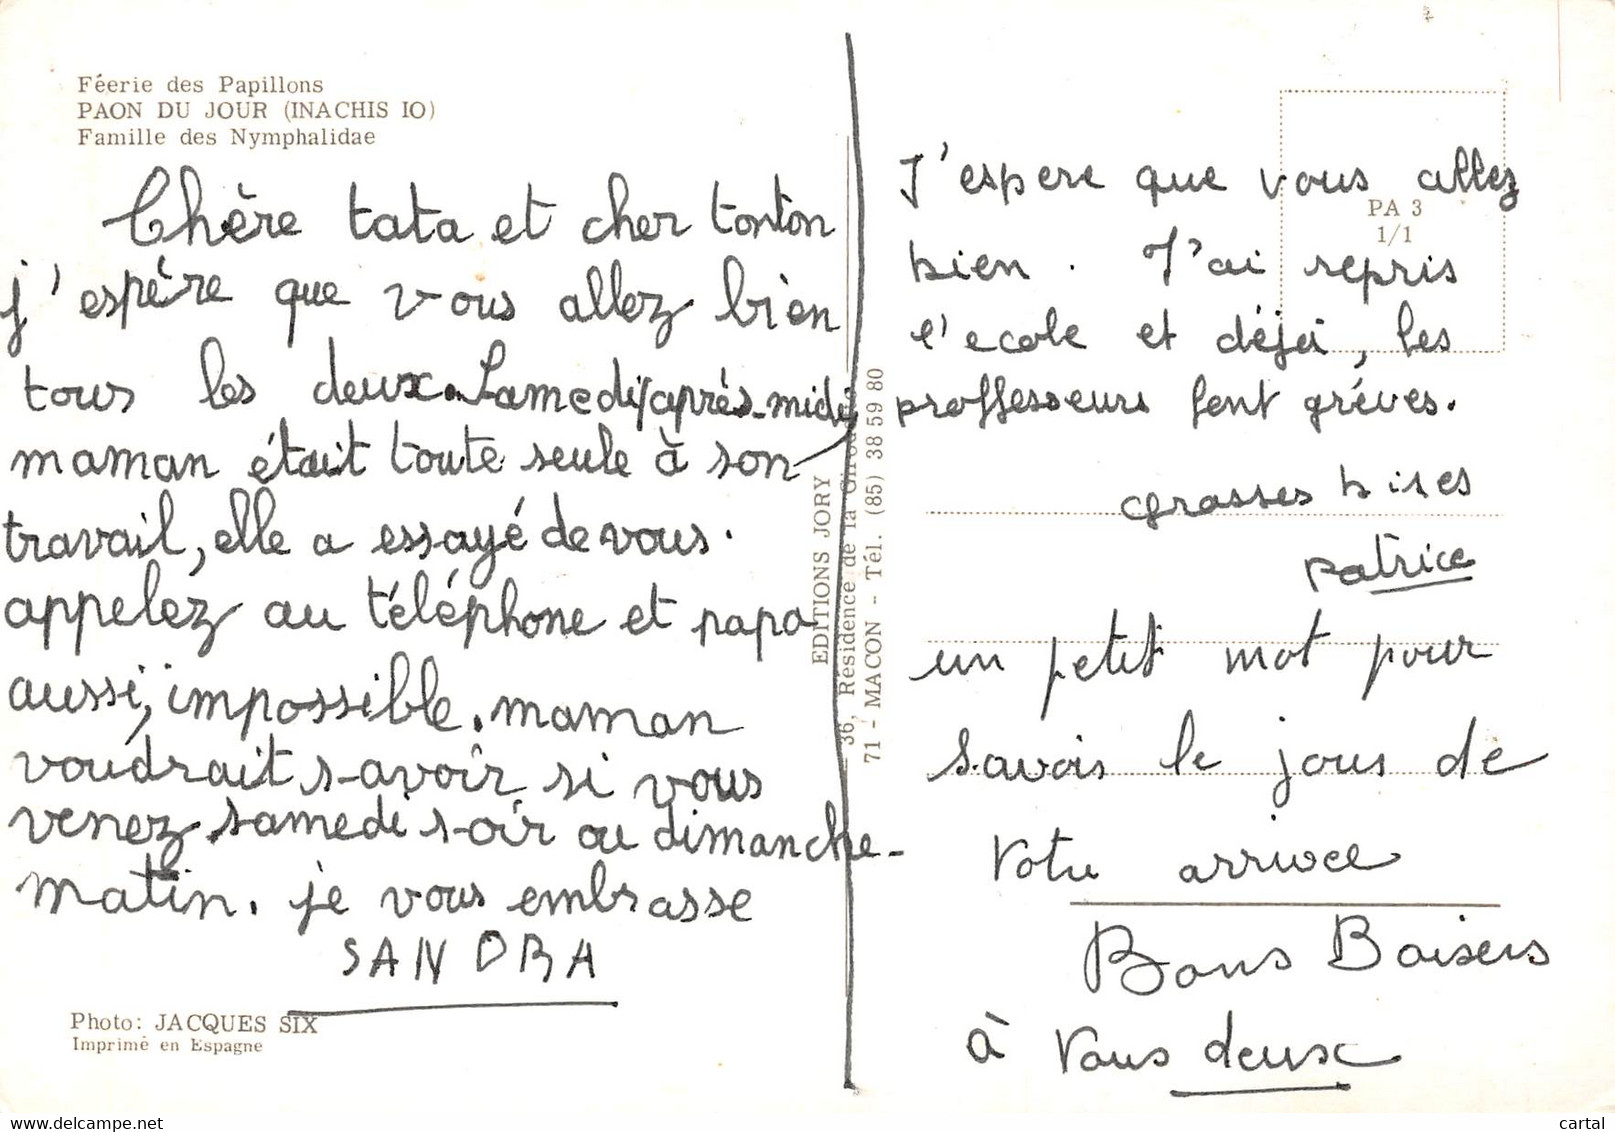 Féerie des Papillons
PAON DU JOUR (INACHIS IO)
Famille des Nymphalidae
Chère tata et cher tonton
j'espère que vous allez bien
tous les deux. Samedi, après-midi
maman était toute seule à son
travail, elle a essayé de vous.
appelez au téléphone et papa
aussi, impossible. maman
voudrait savoir si vous
venez samedi soir ou dimanche-
matin. je vous embrasse
SANDRA
Photo: JACQUES SIX
Imprimé en Espagne
EDITIONS JORY
36, Résidence de la
71 - MACON - Tél. (85) 38 59 80
PA 3
1/1
J'espere que vous allez
bien. J'ai repris
l'ecole et déjà, les
proffesseurs font gréves.
grosses bises
patrice
un petit mot pour
savoir le jour de
votre arrivee
Bons Baisers
à vous deux
cartal
www.delcampe.net